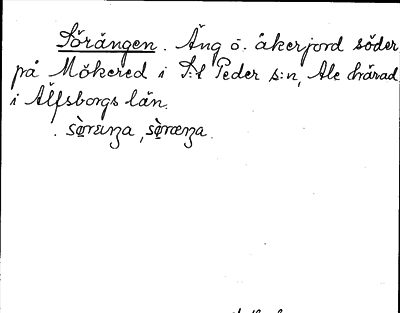 Sörängen. Äng o. åkerjord söder
på Mökered i S:t Peder s:n, Ale härad
i Älfsborgs län.